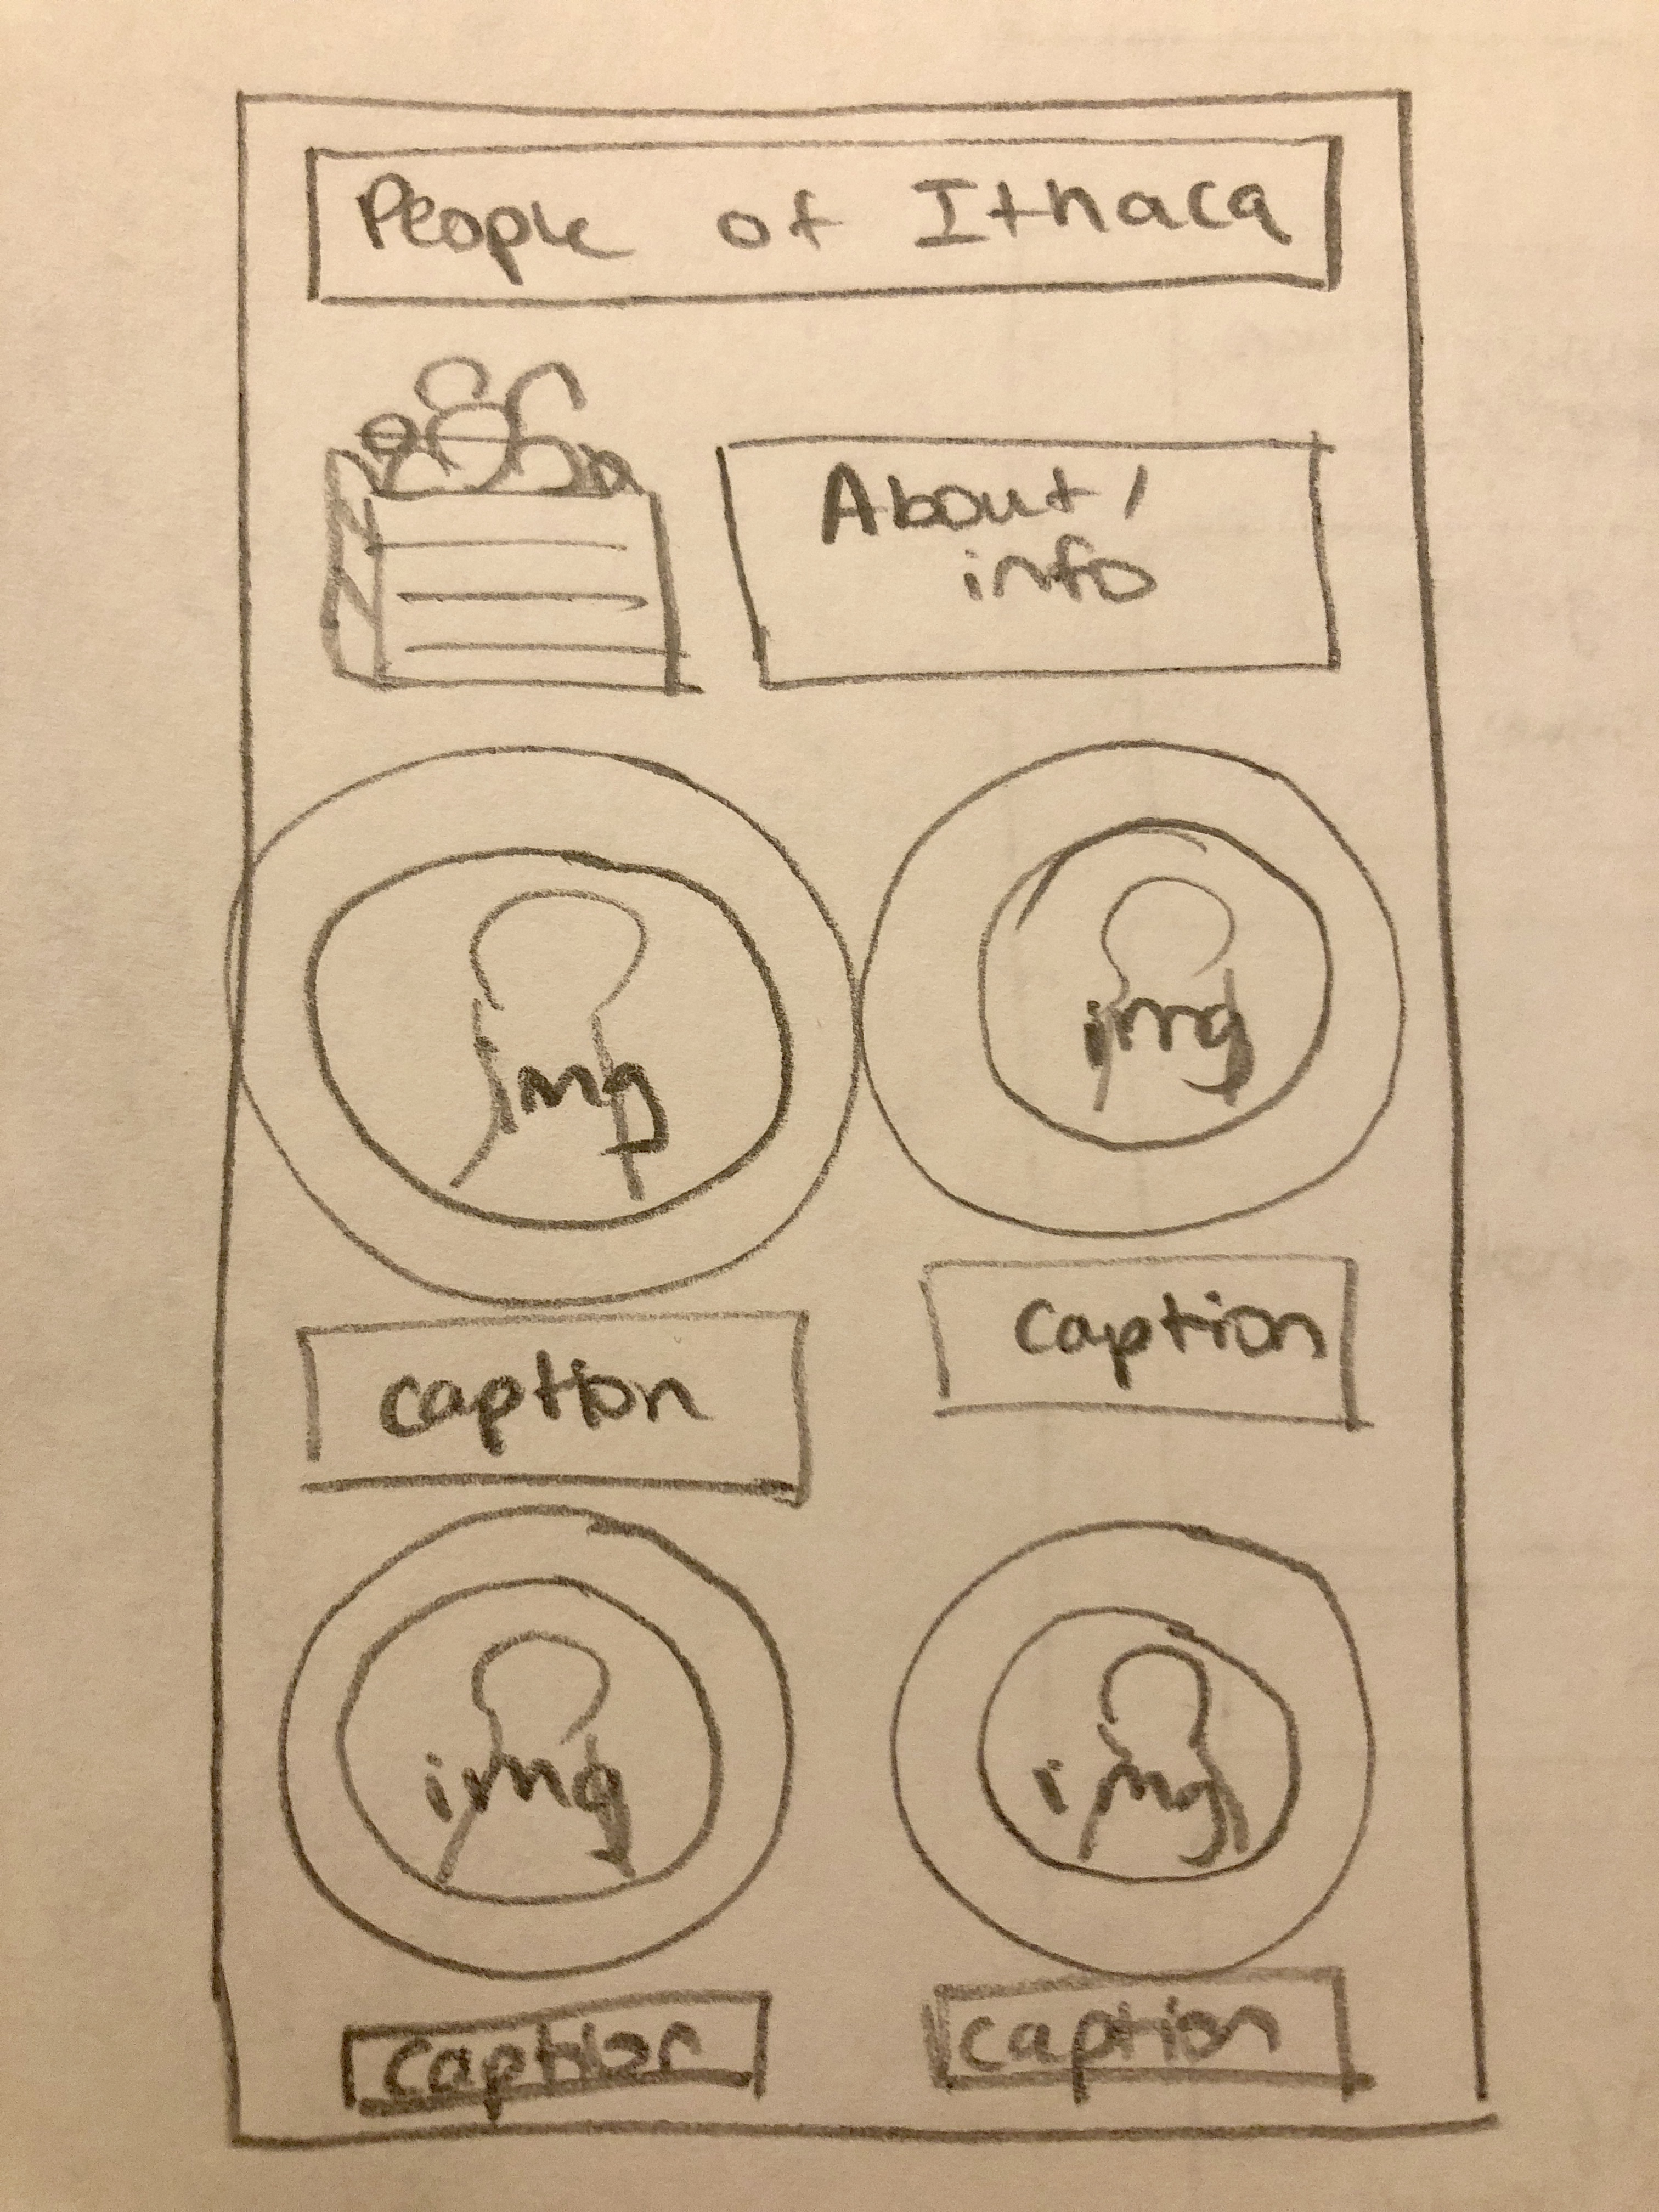 People of Ithaca
About/
info
img
img
caption
caption
img
img
caption
caption